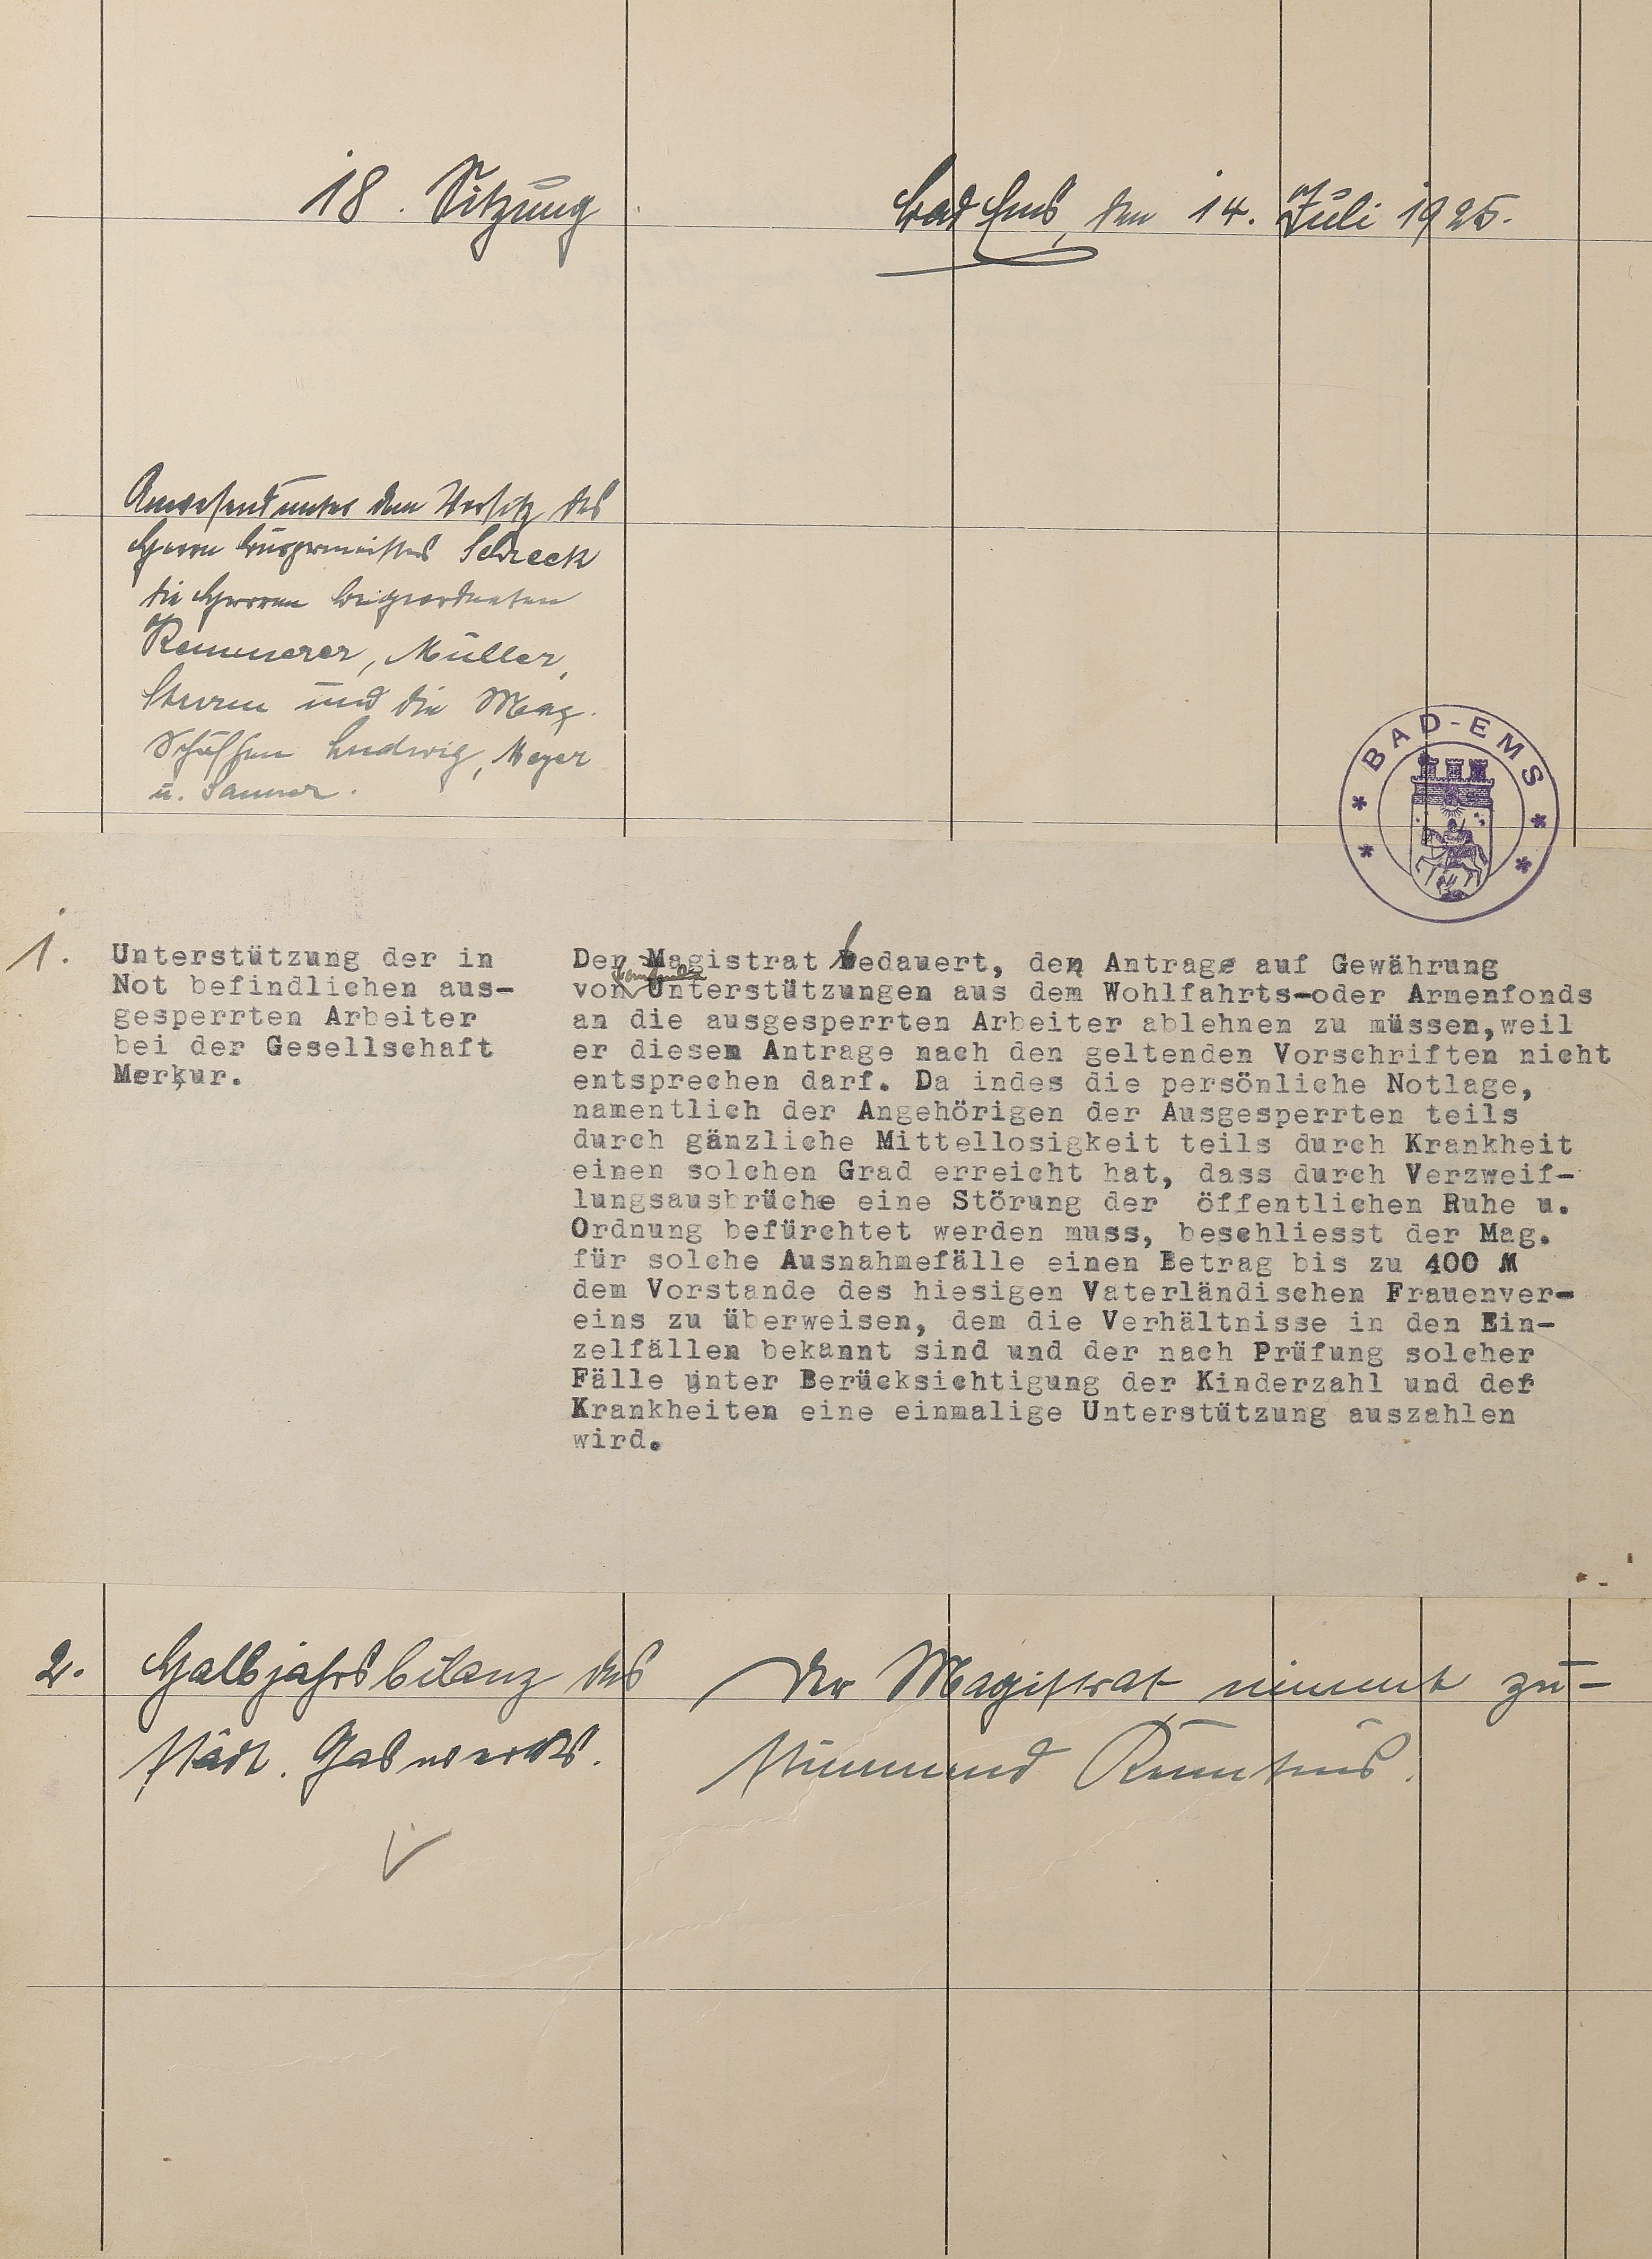 18. Sitzung
Bad Ems, den 14. Juli 1925.
Anwesend unter dem Vorsitz des
Herrn Bürgermeisters Schreck
die Herren Beigeordneten
Kemmerer, Müller,
Sturm und die Mag.
Schöffen Ludwig, Meyer
u. Sanner.
BAD-EMS
1.
Unterstützung der in
Not befindlichen aus-
gesperrten Arbeiter
bei der Gesellschaft
Merkur.
Der Magistrat bedauert, den Antrag auf Gewährung
von Unterstützungen aus dem Wohlfahrts-oder Armenfonds
an die ausgesperrten Arbeiter ablehnen zu müssen,weil
er diesem Antrage nach den geltenden Vorschriften nicht
entsprechen darf. Da indes die persönliche Notlage,
namentlich der Angehörigen der Ausgesperrten teils
durch gänzliche Mittellosigkeit teils durch Krankheit
einen solchen Grad erreicht hat, dass durch Verzweif-
lungsausbrüche eine Störung der öffentlichen Ruhe u.
Ordnung befürchtet werden muss, beschliesst der Mag.
für solche Ausnahmefälle einen Betrag bis zu 400 M
dem Vorstande des hiesigen Vaterländischen Frauenver-
eins zu überweisen, dem die Verhältnisse in den Ein-
zelfällen bekannt sind und der nach Prüfung solcher
Fälle unter Berücksichtigung der Kinderzahl und der
Krankheiten eine einmalige Unterstützung auszahlen
wird.
2.
Halbjahrsbilanz des
städt. Gaswerks.
Der Magistrat nimmt zu-
stimmend Kenntnis.